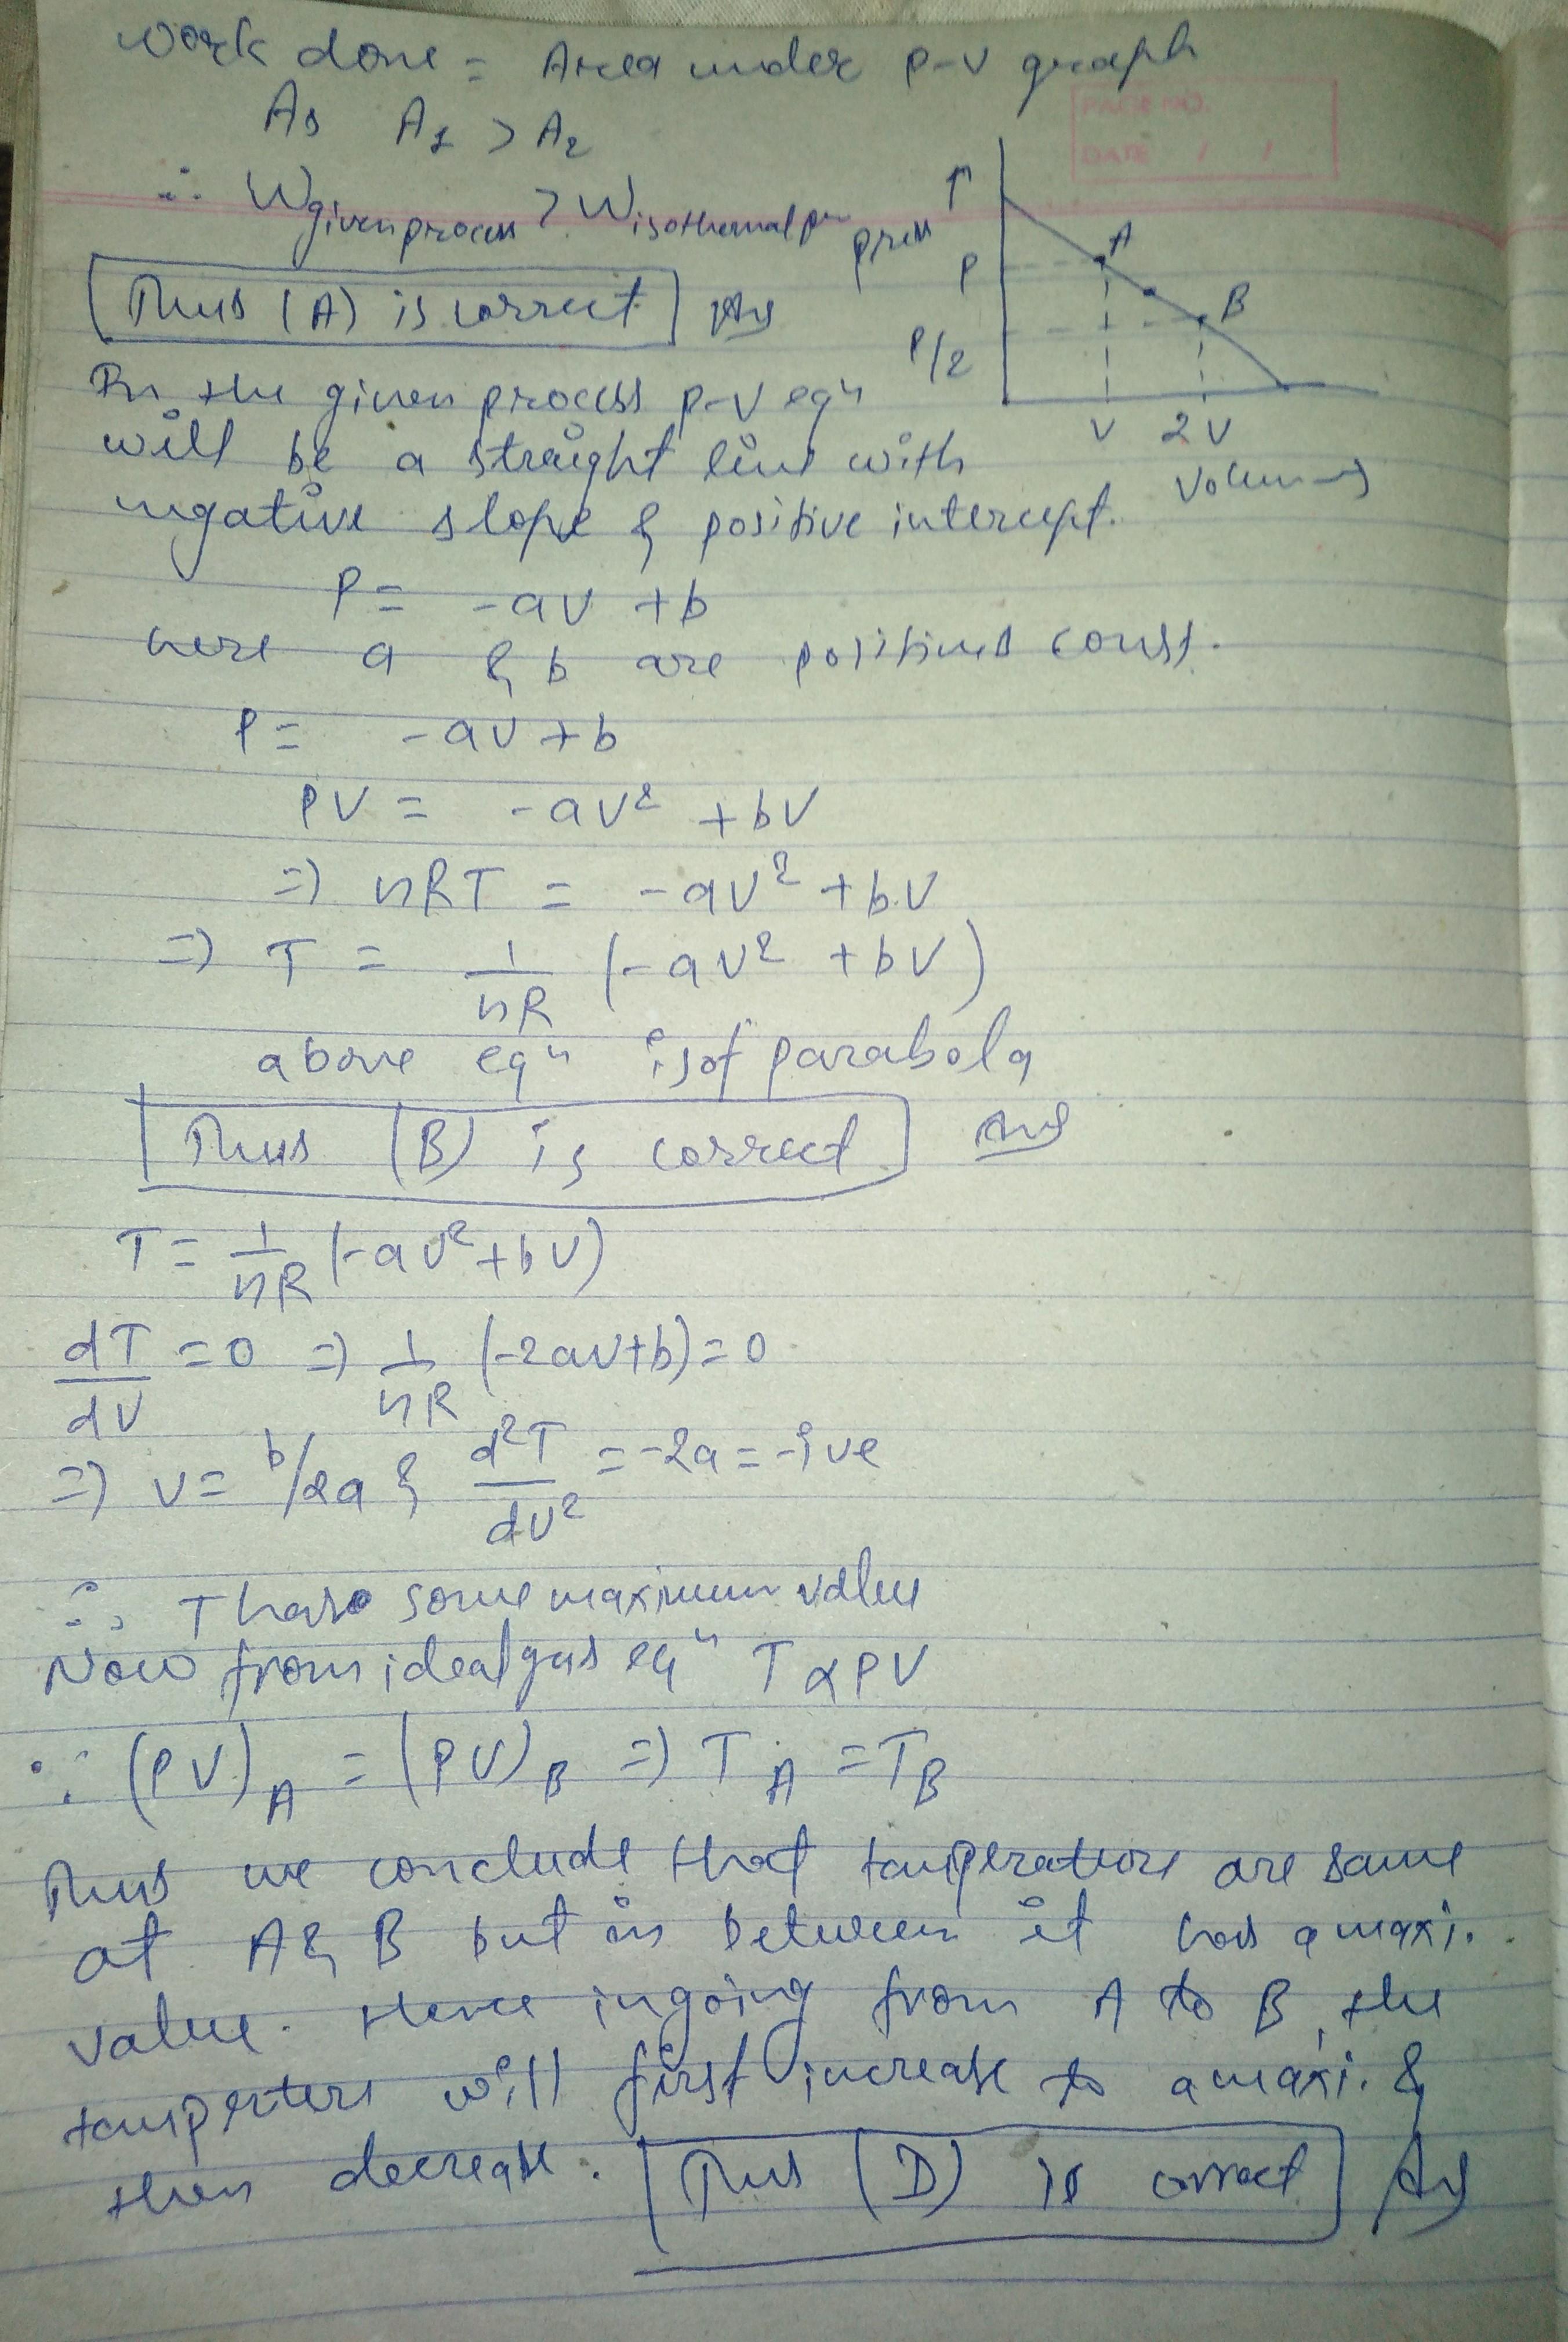 Work done = Area under P-V graph
PAGE NO.
DATE / /
As A1 > A2
∴ Wgiven process > Wisothermal pr
[Thus (A) is correct] Ans
↑
press
P
P/2
A
B
V 2V
Volum→
In the given process P-V eqn
will be a straight line with
negative slope & positive intercept.
P = -aV + b
here a & b are positives const.
P = -aV + b
PV = -aV² + bV
=> nRT = -aV² + bV
=> T = 1/nR (-aV² + bV)
above eqn is of parabola
[Thus (B) is correct] Ans
T = 1/nR (-aV² + bV)
dT/dV = 0 => 1/nR (-2aV+b) = 0
=> V = b/2a & d²T/dV² = -2a = -ive
∴ T has some maximum value
Now from ideal gas eqn T α PV
∵ (PV)A = (PV)B => TA = TB
Thus we conclude that temperature are same
at A & B but in between it has a maxi.
value. Hence in going from A to B, the
temperters will first increase to a maxi. &
then decrease. [Thus (D) is correct] Ans